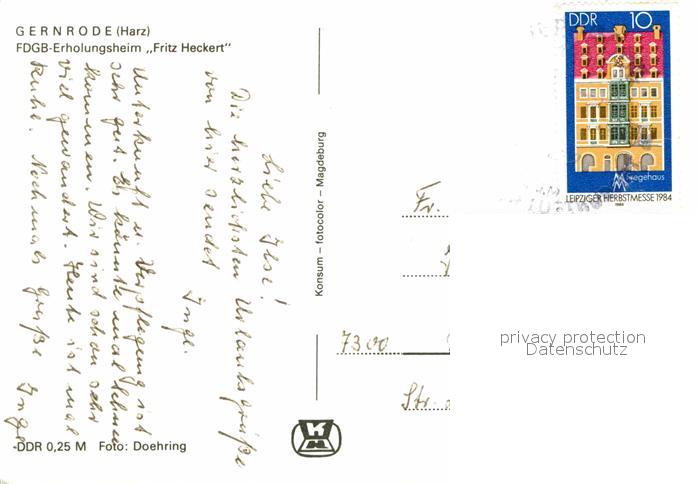 GERNRODE (Harz)
FDGB-Erholungsheim „Fritz Heckert“
Liebe Ilse!
Die herzlichsten Urlaubsgrüße
von hier sendet
Inge.
Unterkunft u. Verpflegung ist
sehr gut. Es könnte mal
kommen. Wir sind schon sehr
viel gewandert. Heute ist mal
Ruhe. Nochmals Grüße Inge
-DDR 0,25 M Foto: Doehring
Konsum – fotocolor – Magdeburg
DDR 10
Fregehaus
LEIPZIGER HERBSTMESSE 1984
Fr.
7300
Str.
privacy protection
Datenschutz